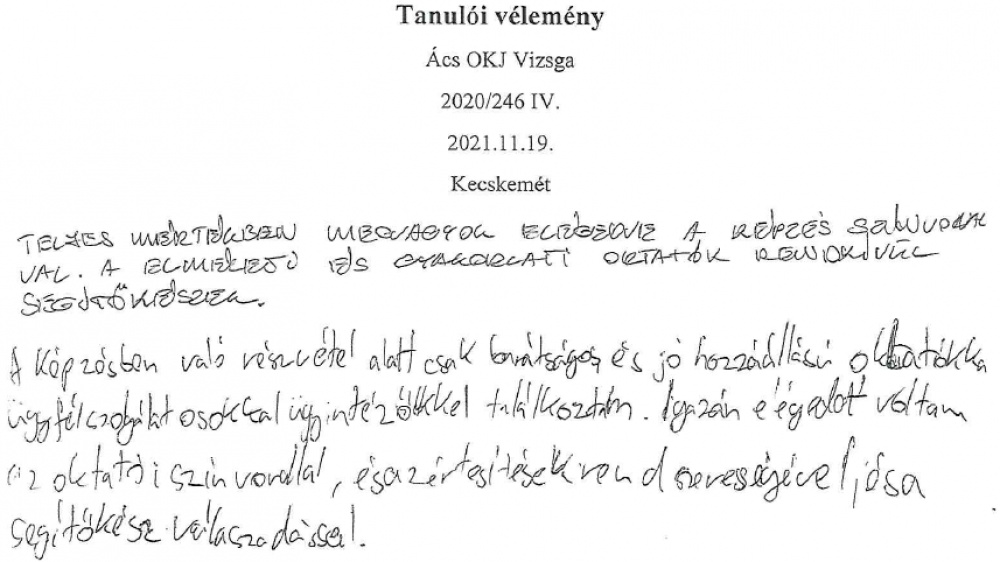 Tanulói vélemény
Ács OKJ Vizsga
2020/246 IV.
2021.11.19.
Kecskemét
TELJES MÉRTÉKBEN MEGVAGYOK ELÉGEDVE A KÉPZÉS SZÍNVONAL
VAL. A ELMÉLETI ÉS GYAKORLATI OKTATÓK RENDKÍVÜL
SEGÍTŐKÉSZEK.
A képzésben való részvétel alatt csak barátságos és jó hozzáállású oktatókka
ügyfélszolgálatosokkal ügyintézőkkel találkoztam. Igazán elégedett voltam
az oktatói színvonallal, és az értesítések rendszerességével, és a
segítőkész válaszadással.